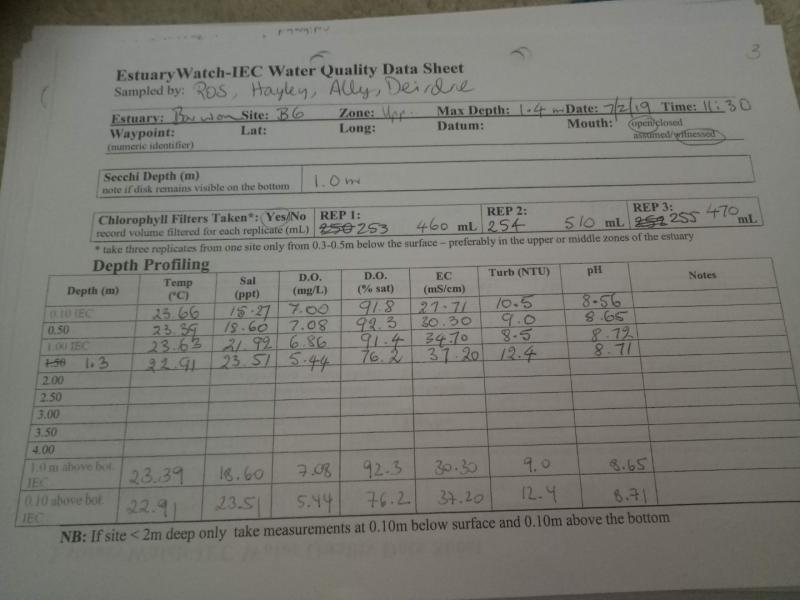 3
EstuaryWatch-IEC Water Quality Data Sheet
Sampled by: ROS, Hayley, Ally, Deirdre
Estuary: Barwon Site: B6 Zone: Upp. Max Depth: 1.4 m Date: 7/2/19 Time: 11:30
Waypoint: Lat: Long: Datum: Mouth: open/closed
(numeric identifier) assumed/witnessed
Secchi Depth (m) 1.0m
note if disk remains visible on the bottom
Chlorophyll Filters Taken*: Yes/No REP 1: REP 2: REP 3:
record volume filtered for each replicate (mL) 250 253 460 mL 254 510 mL 252 255 470 mL
* take three replicates from one site only from 0.3-0.5m below the surface – preferably in the upper or middle zones of the estuary
Depth Profiling
Depth (m) Temp (°C) Sal (ppt) D.O. (mg/L) D.O. (% sat) EC (mS/cm) Turb (NTU) pH Notes
0.10 IEC 23.66 15.27 7.00 91.8 27.71 10.5 8.56
0.50 23.39 18.60 7.08 92.3 30.30 9.0 8.65
1.00 IEC 23.63 21.92 6.86 91.4 34.70 8.5 8.72
1.50 1.3 22.91 23.51 5.44 76.2 37.20 12.4 8.71
2.00
2.50
3.00
3.50
4.00
1.0 m above bot. IEC 23.39 18.60 7.08 92.3 30.30 9.0 8.65
0.10 above bot. IEC 22.91 23.51 5.44 76.2 37.20 12.4 8.71
NB: If site < 2m deep only take measurements at 0.10m below surface and 0.10m above the bottom